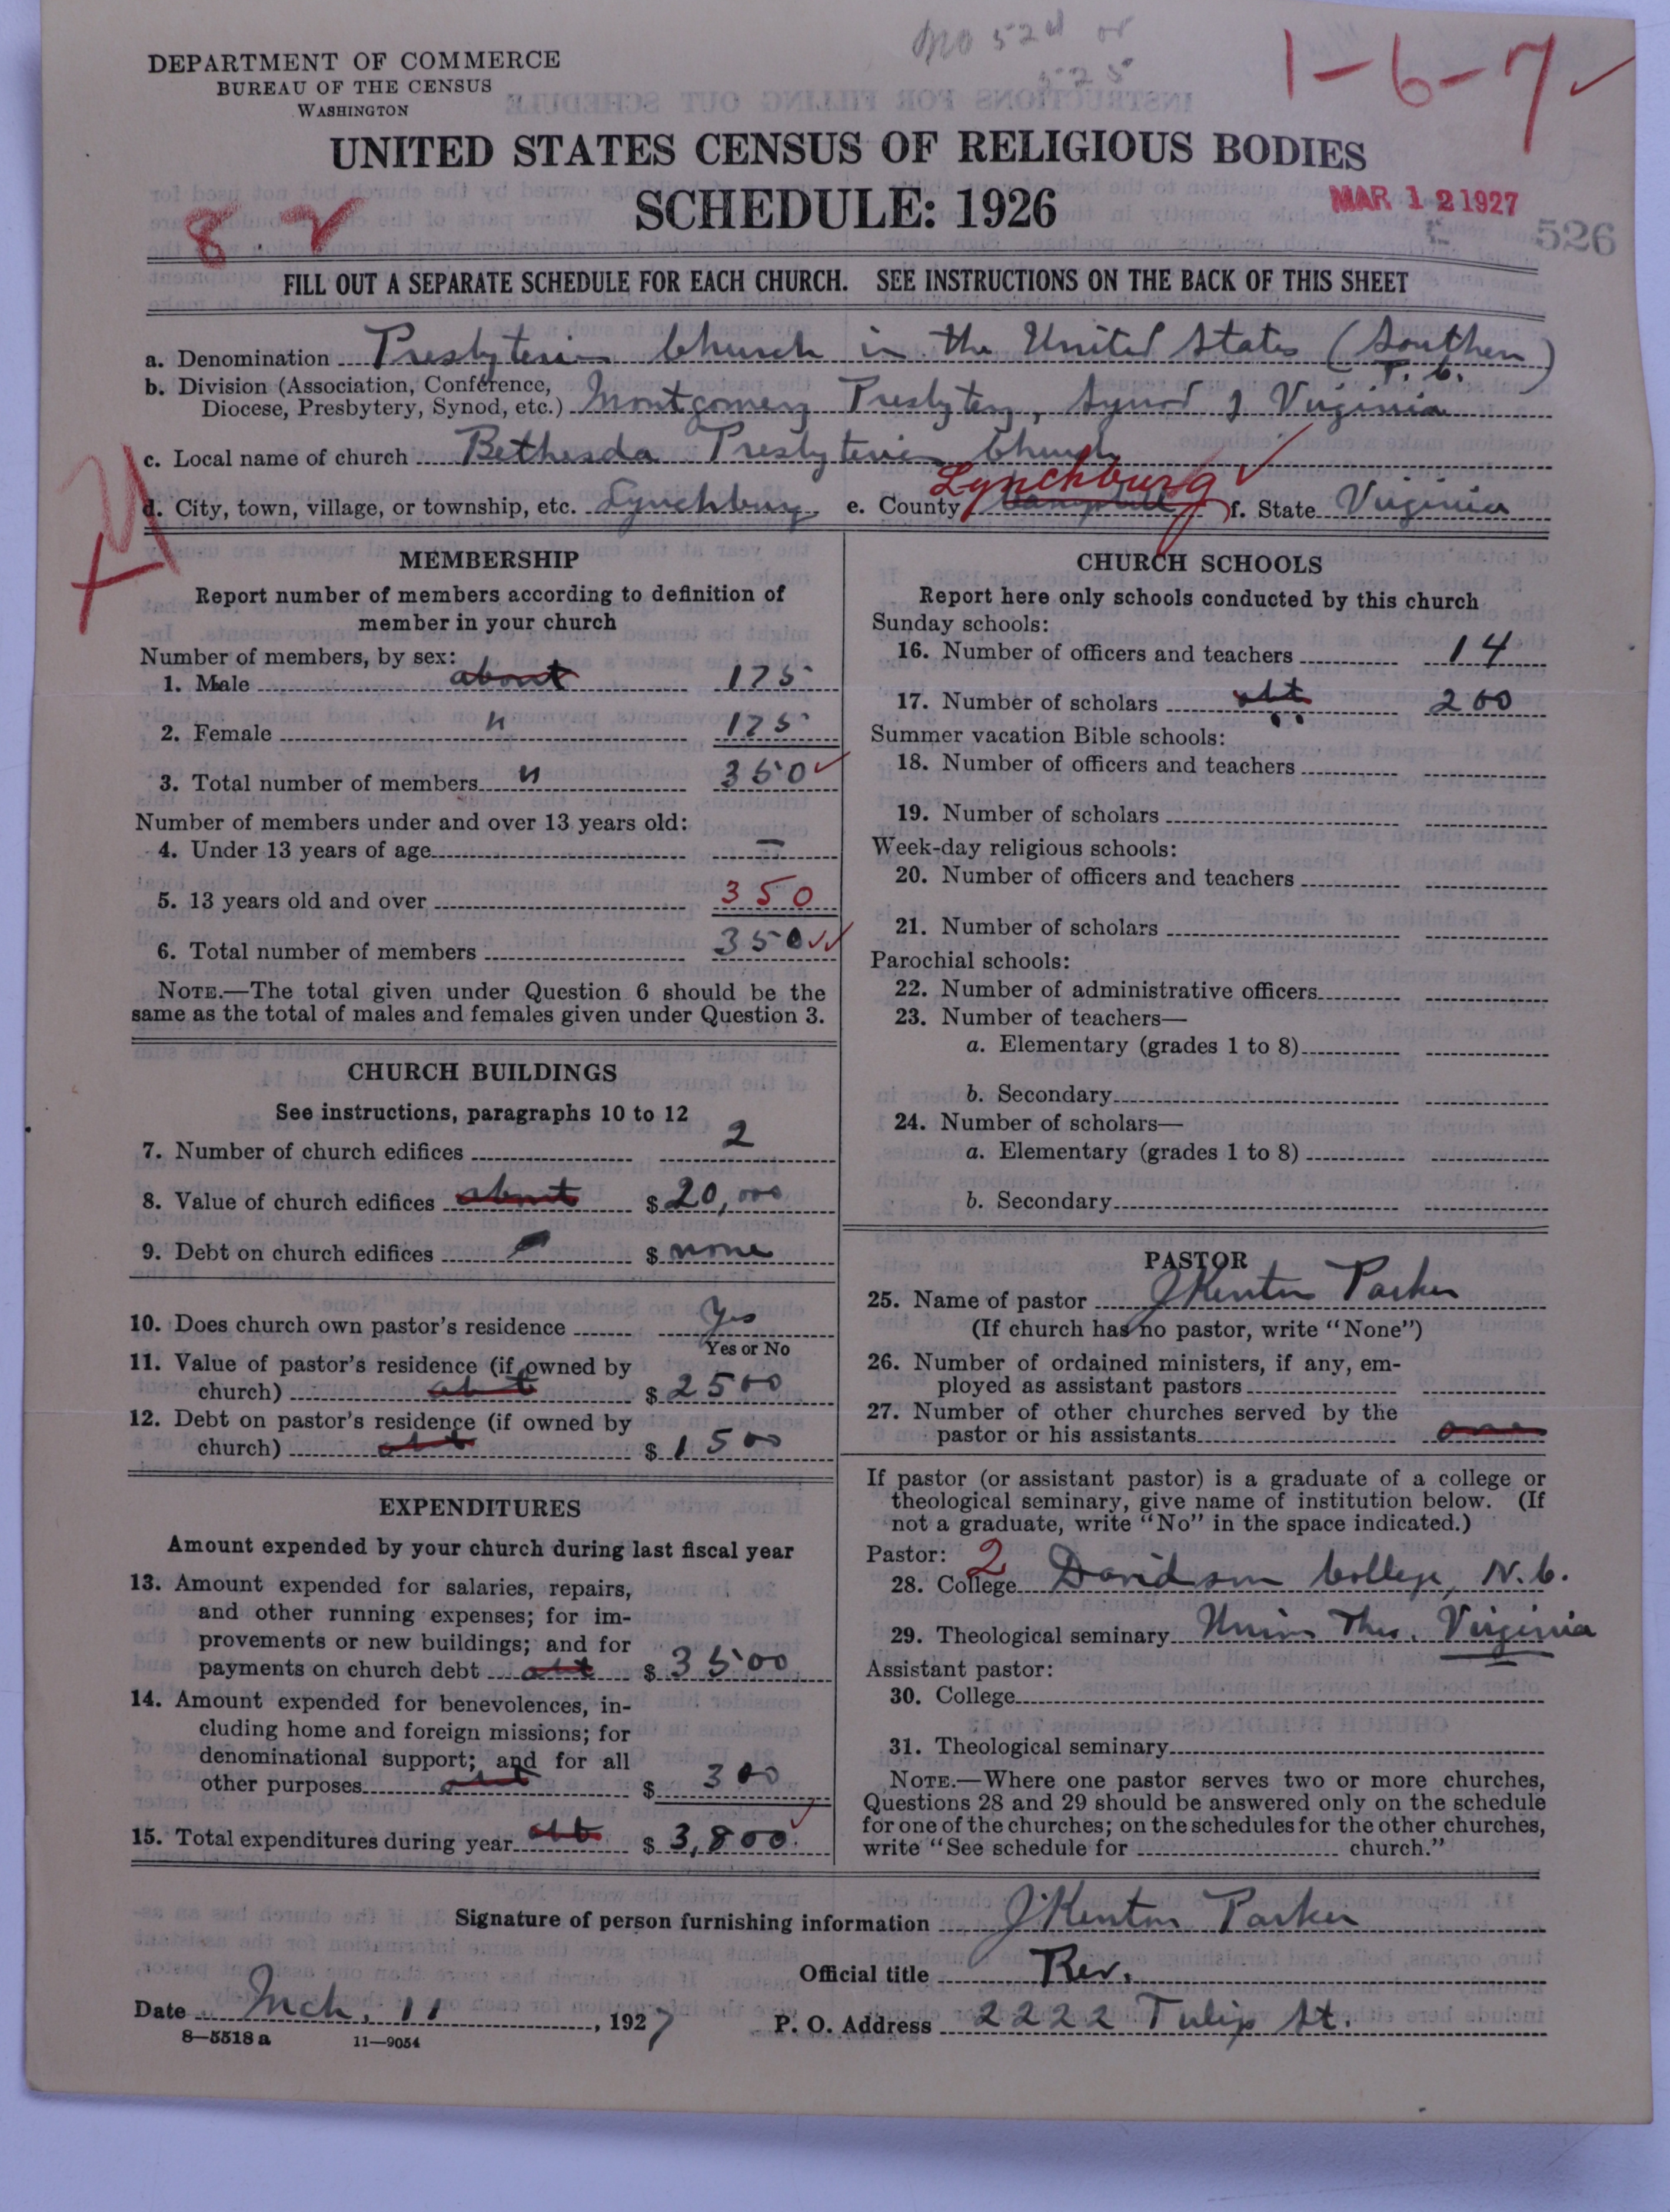 DEPARTMENT OF COMMERCE
BUREAU OF THE CENSUS
WASHINGTON
no 52d or
525
1-6-7 ✓
UNITED STATES CENSUS OF RELIGIOUS BODIES
SCHEDULE: 1926
MAR 12 1927
526
8.2
FILL OUT A SEPARATE SCHEDULE FOR EACH CHURCH. SEE INSTRUCTIONS ON THE BACK OF THIS SHEET
a. Denomination Presbyterian Church in the United States (Southern)
b. Division (Association, Conference,
Diocese, Presbytery, Synod, etc.) Montgomery Presbytery, Synod of Virginia
c. Local name of church Bethesda Presbyterian Church
Lynchburg ✓
d. City, town, village, or township, etc. Lynchburg e. County Campbell f. State Virginia
MEMBERSHIP
Report number of members according to definition of
member in your church
Number of members, by sex:
1. Male about 175
2. Female " 175
3. Total number of members " 350 ✓
Number of members under and over 13 years old:
4. Under 13 years of age —
5. 13 years old and over 350
6. Total number of members 350 ✓✓
NOTE.—The total given under Question 6 should be the
same as the total of males and females given under Question 3.
CHURCH BUILDINGS
See instructions, paragraphs 10 to 12
7. Number of church edifices 2
8. Value of church edifices about $ 20,000
9. Debt on church edifices $ none
10. Does church own pastor's residence Yes
Yes or No
11. Value of pastor's residence (if owned by
church) abt $ 2500
12. Debt on pastor's residence (if owned by
church) abt $ 1500
EXPENDITURES
Amount expended by your church during last fiscal year
13. Amount expended for salaries, repairs,
and other running expenses; for im-
provements or new buildings; and for
payments on church debt abt $ 3500
14. Amount expended for benevolences, in-
cluding home and foreign missions; for
denominational support; and for all
other purposes abt $ 300
15. Total expenditures during year abt $ 3,800 ✓
CHURCH SCHOOLS
Report here only schools conducted by this church
Sunday schools:
16. Number of officers and teachers 14
17. Number of scholars abt 200
Summer vacation Bible schools:
18. Number of officers and teachers
19. Number of scholars
Week-day religious schools:
20. Number of officers and teachers
21. Number of scholars
Parochial schools:
22. Number of administrative officers
23. Number of teachers—
a. Elementary (grades 1 to 8)
b. Secondary
24. Number of scholars—
a. Elementary (grades 1 to 8)
b. Secondary
PASTOR
25. Name of pastor J Kenton Parker
(If church has no pastor, write "None")
26. Number of ordained ministers, if any, em-
ployed as assistant pastors
27. Number of other churches served by the
pastor or his assistants one
If pastor (or assistant pastor) is a graduate of a college or
theological seminary, give name of institution below. (If
not a graduate, write "No" in the space indicated.)
Pastor: 2
28. College Davidson College, N.C.
29. Theological seminary Union Theo. Virginia
Assistant pastor:
30. College
31. Theological seminary
NOTE.—Where one pastor serves two or more churches,
Questions 28 and 29 should be answered only on the schedule
for one of the churches; on the schedules for the other churches,
write "See schedule for church."
Signature of person furnishing information J Kenton Parker
Official title Rev.
Date Mch, 11, 1927 P. O. Address 2222 Tulip St.
8—5518 a 11—9054